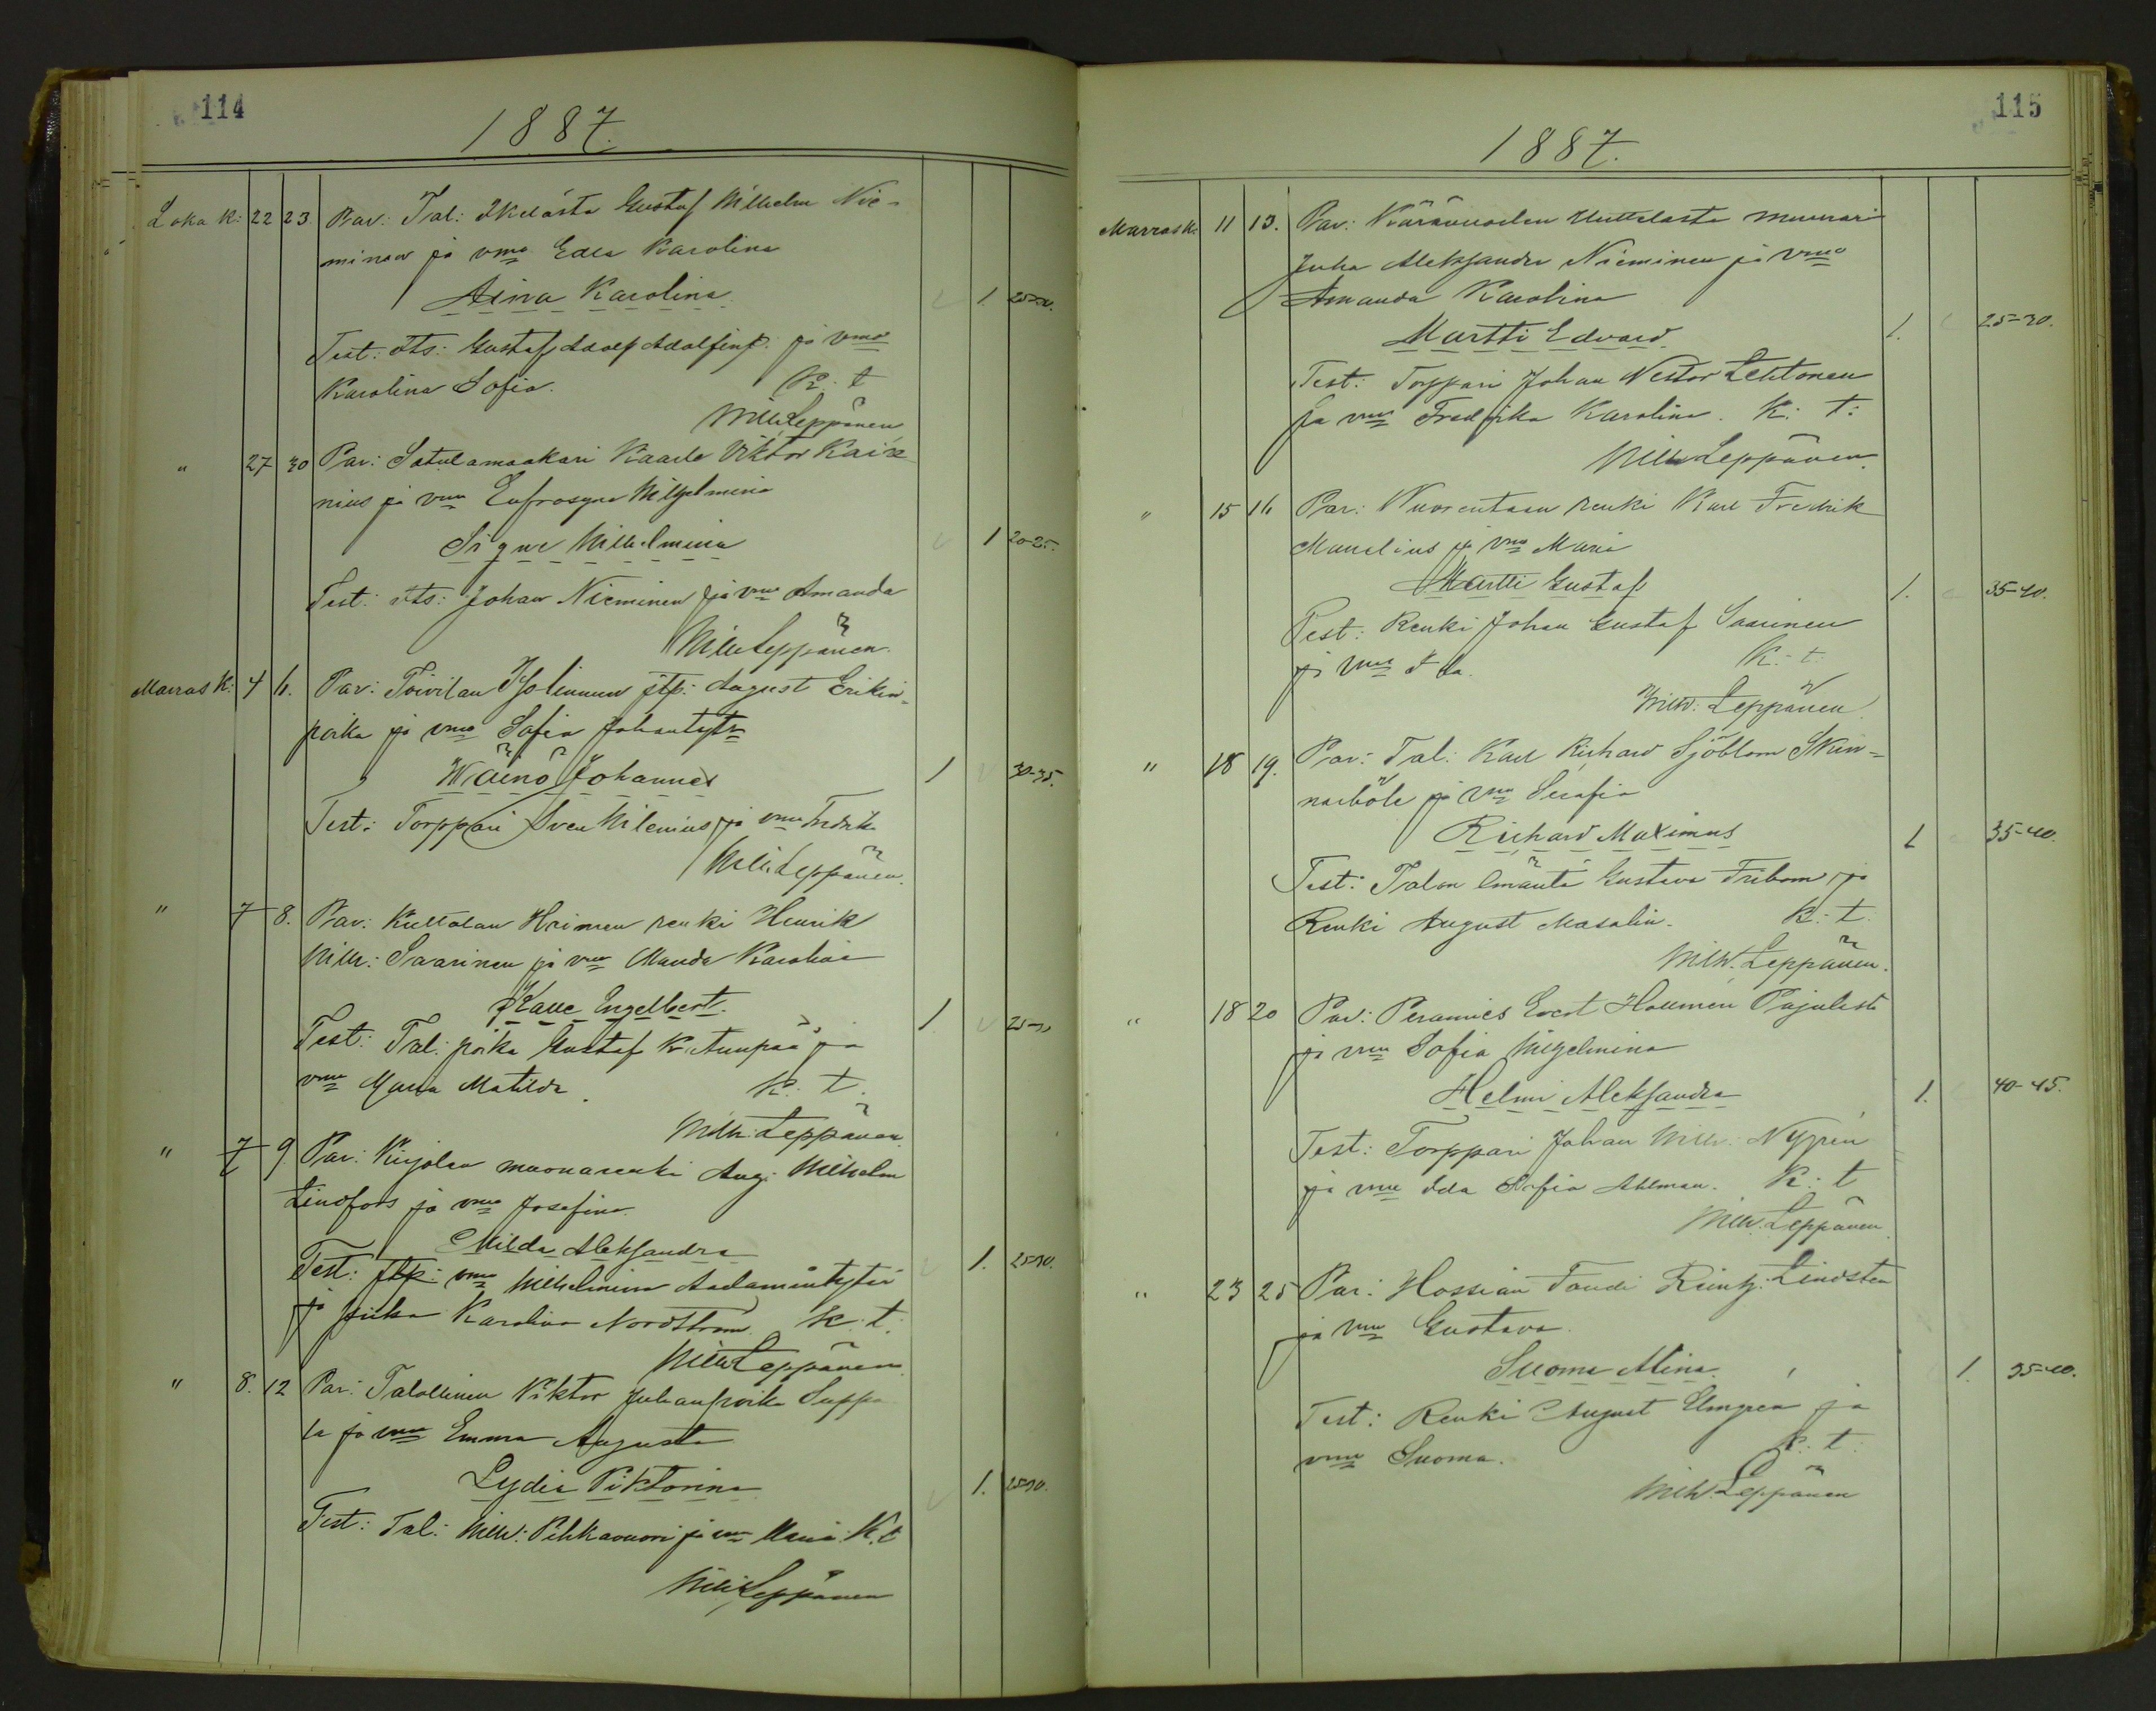 114
1887.
Loka k: 22 23. Par: Tal: Ikelästa Gustaf Wilhelm Nie-
minen ja vmo Edla Karolina
Aina Karolina 1. 25-30.
Test: Gustaf Adolf Adolfinp. ja vmo
Karolina Sofia. K: t
Wilh. Leppänen
" 27 30 Par: Satulamaakari Kaarle Viktor
nius ja vmo Eufrosyna Wilhelmina
Signe Wilhelmina 1 20-25.
Test: Johan Nieminen ja vmo Amanda
Wilh. Leppänen.
Marras K: 4 6. Par: Toivilan itp: August Erikin-
poika ja vmo Sofia Johantytr
Wäinö Johannes 1 30-35.
Test: Torppari Sven ja vmo Fredrika
Wilh. Leppänen.
" 7 8. Par: Kultolan renki Henrik
Wilh: Saarinen ja vmo Manda Karolina
Kalle Engelbert. 1
Test: Tal: poika Gustaf ja
vmo Maria Matilda. K. t.
Wilh: Leppänen.
" 7 9 Par: Kirjolan muonarenki Aug. Wilhelm
Lindfors ja vmo Josefina.
Milda Aleksandra 1. 25-30.
Test: Itp: vmo Wilhelmina Aadamintytär
ja piika Karolina Nordström. K. t.
Wilh. Leppänen
" 8. 12 Par: Talollinen Viktor Juhanpoika Suppa
la ja vmo Emma Augusta
Lydia Viktorina 1. 25-30.
Test: Tal: Wilh: Pihkavuori ja vmo Maria. K. t
Wilh. Leppänen
115
1887.
Marras K. 11 13. Par: muurari
Juha Aleksander Nieminen ja vmo
Amanda Karolina
Martti Edvard 1. 25-30.
Test: Torppari Johan Nestor Lehtonen
ja vmo Fredrika Karolina. K: t:
Wilh Leppänen.
" 15 16 Par: Nuorentaan renki Karl Fredrik
Manelius ja vmo Maria
Martti Gustaf 1. 35-40.
Test: Renki Johan Gustaf Saarinen
ja vmo Ida. K: t.
Wilh: Leppänen.
" 18 19. Par: Tal: Karl Richard Sjöblom Skin-
narböle ja vmo Serafia
Richard Maximus 1 35-40.
Test: Talon emäntä Gustava Fribom ja
Renki August Masalin. K: t.
Wilh. Leppänen.
" 18 20 Par: Peramies Evert
ja vmo Sofia Wilhelmina
Helmi Aleksandra 1. 40-45.
Test: Torppari Johan Wilh: Nygren
ja vmo Ida Sofia Ahlman. K: t
Wilh. Leppänen.
" 23 25 Par: Reinh. Lindsten
ja vmo Gustava.
Suoma Alina. 1. 35-40.
Test: Renki August Elmgren ja
vmo Suoma. K: t:
Wilh. Leppänen